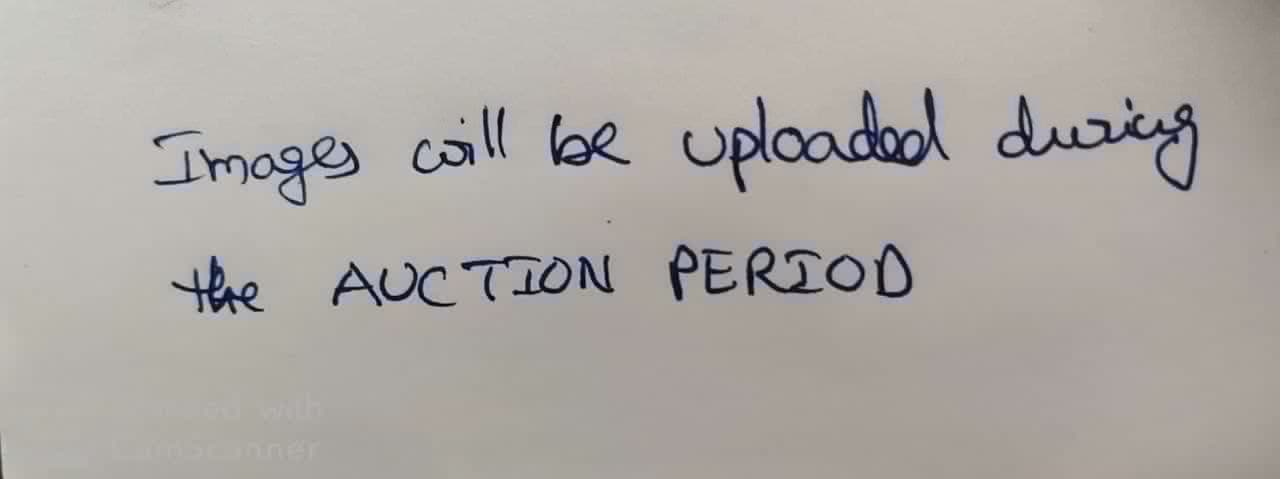 Images will be uploaded during
the AUCTION PERIOD
with
CamScanner